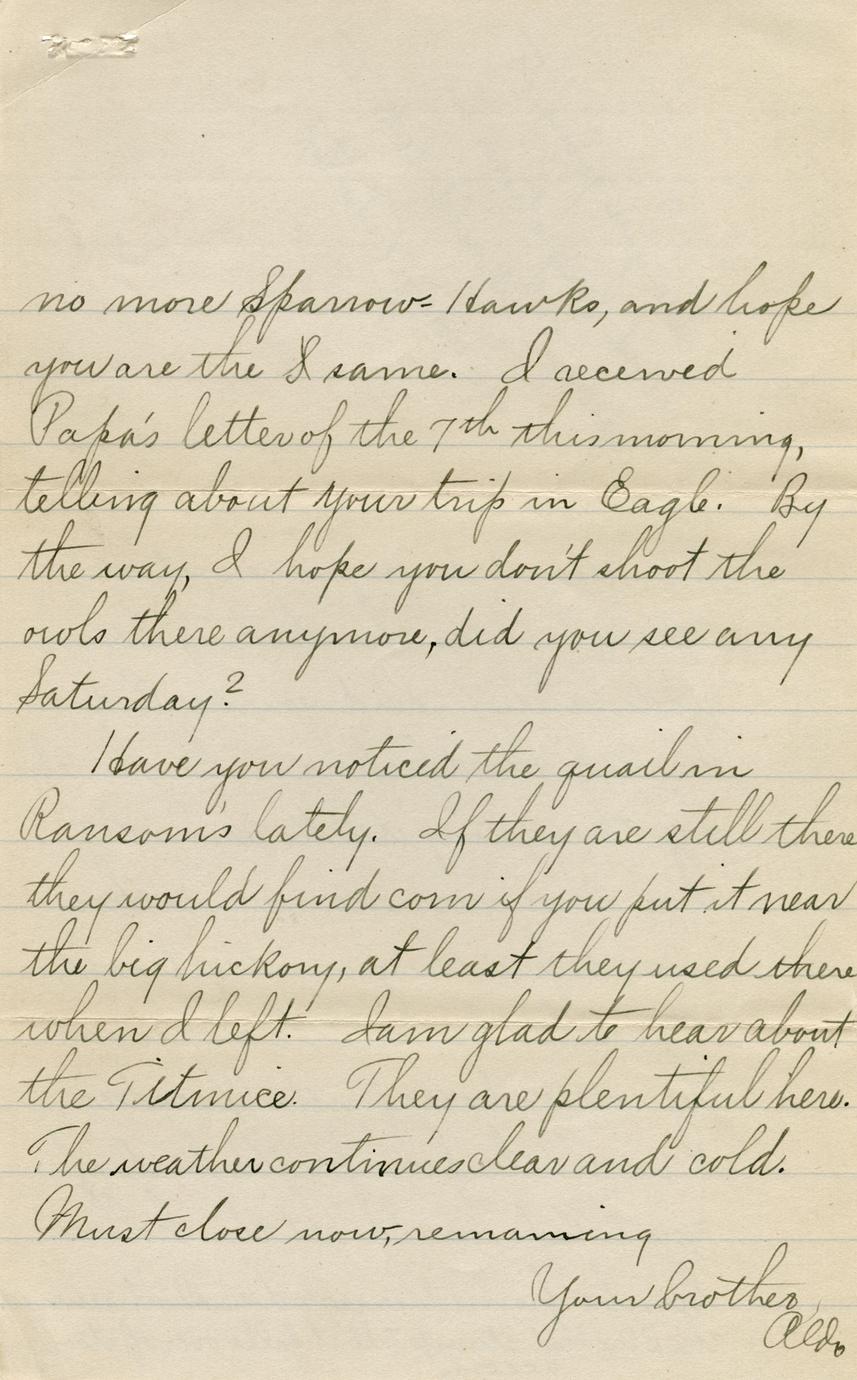 no more Sparrow-Hawks, and hope
you are the S same. I received
Papa's letter of the 7th this morning,
telling about your trip in Eagle. By
the way, I hope you don't shoot the
owls there anymore, did you see any
Saturday?
Have you noticed the quail in
Ransom's lately. If they are still there
they would find corn if you put it near
the big hickory, at least they used there
when I left. I am glad to hear about
the Titmice. They are plentiful here.
The weather continues clear and cold.
Must close now, remaining
Your brother,
Aldo